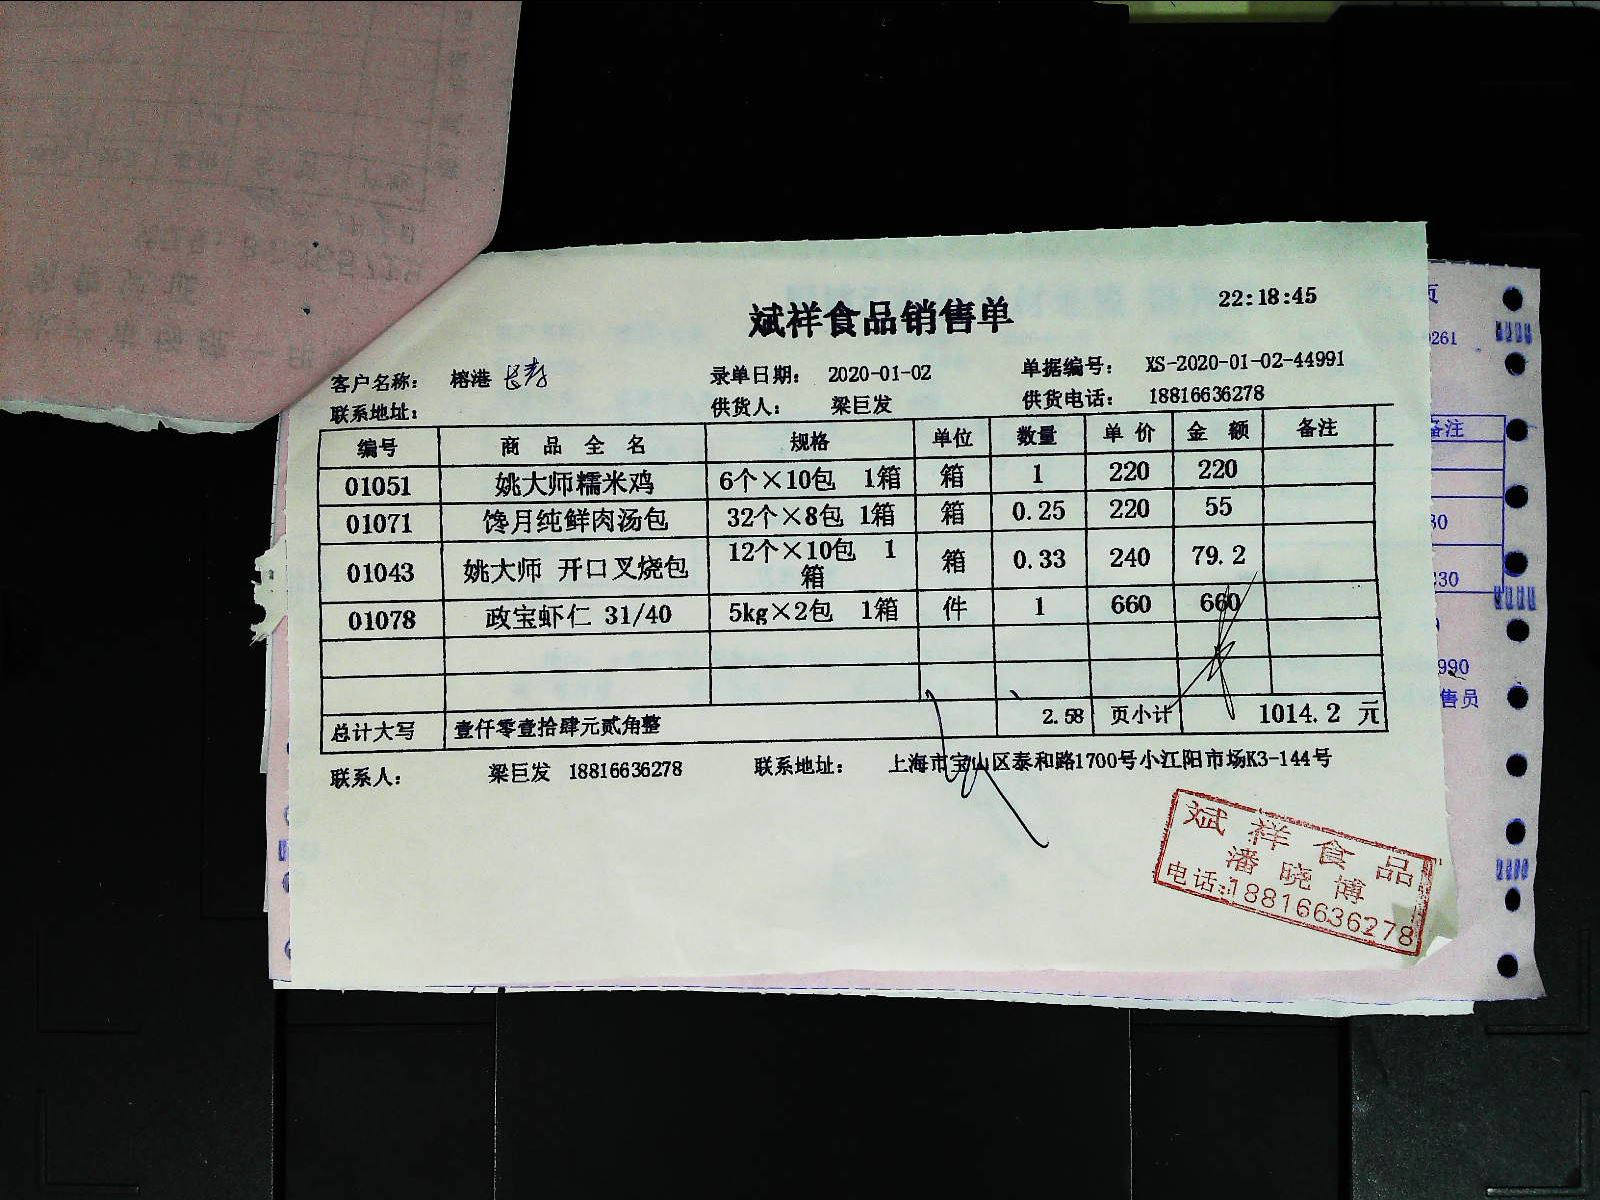 斌祥食品销售单 22:18:45
客户名称： 榕港 录单日期： 2020-01-02 单据编号： XS-2020-01-02-44991
联系地址： 供货人： 梁巨发 供货电话： 18816636278
编号 商品全名 规格 单位 数量 单价 金额 备注
01051 姚大师糯米鸡 6个×10包 1箱 箱 1 220 220
01071 馋月纯鲜肉汤包 32个×8包 1箱 箱 0.25 220 55
01043 姚大师 开口叉烧包 12个×10包 1
箱 箱 0.33 240 79.2
01078 政宝虾仁 31/40 5kg×2包 1箱 件 1 660 660
总计大写 壹仟零壹拾肆元贰角整 2.58 页小计 1014.2 元
联系人： 梁巨发 18816636278 联系地址： 上海市宝山区泰和路1700号小江阳市场K3-144号
斌祥食品
潘晓博
电话:18816636278
页
0261
备注
30
230
990
售员